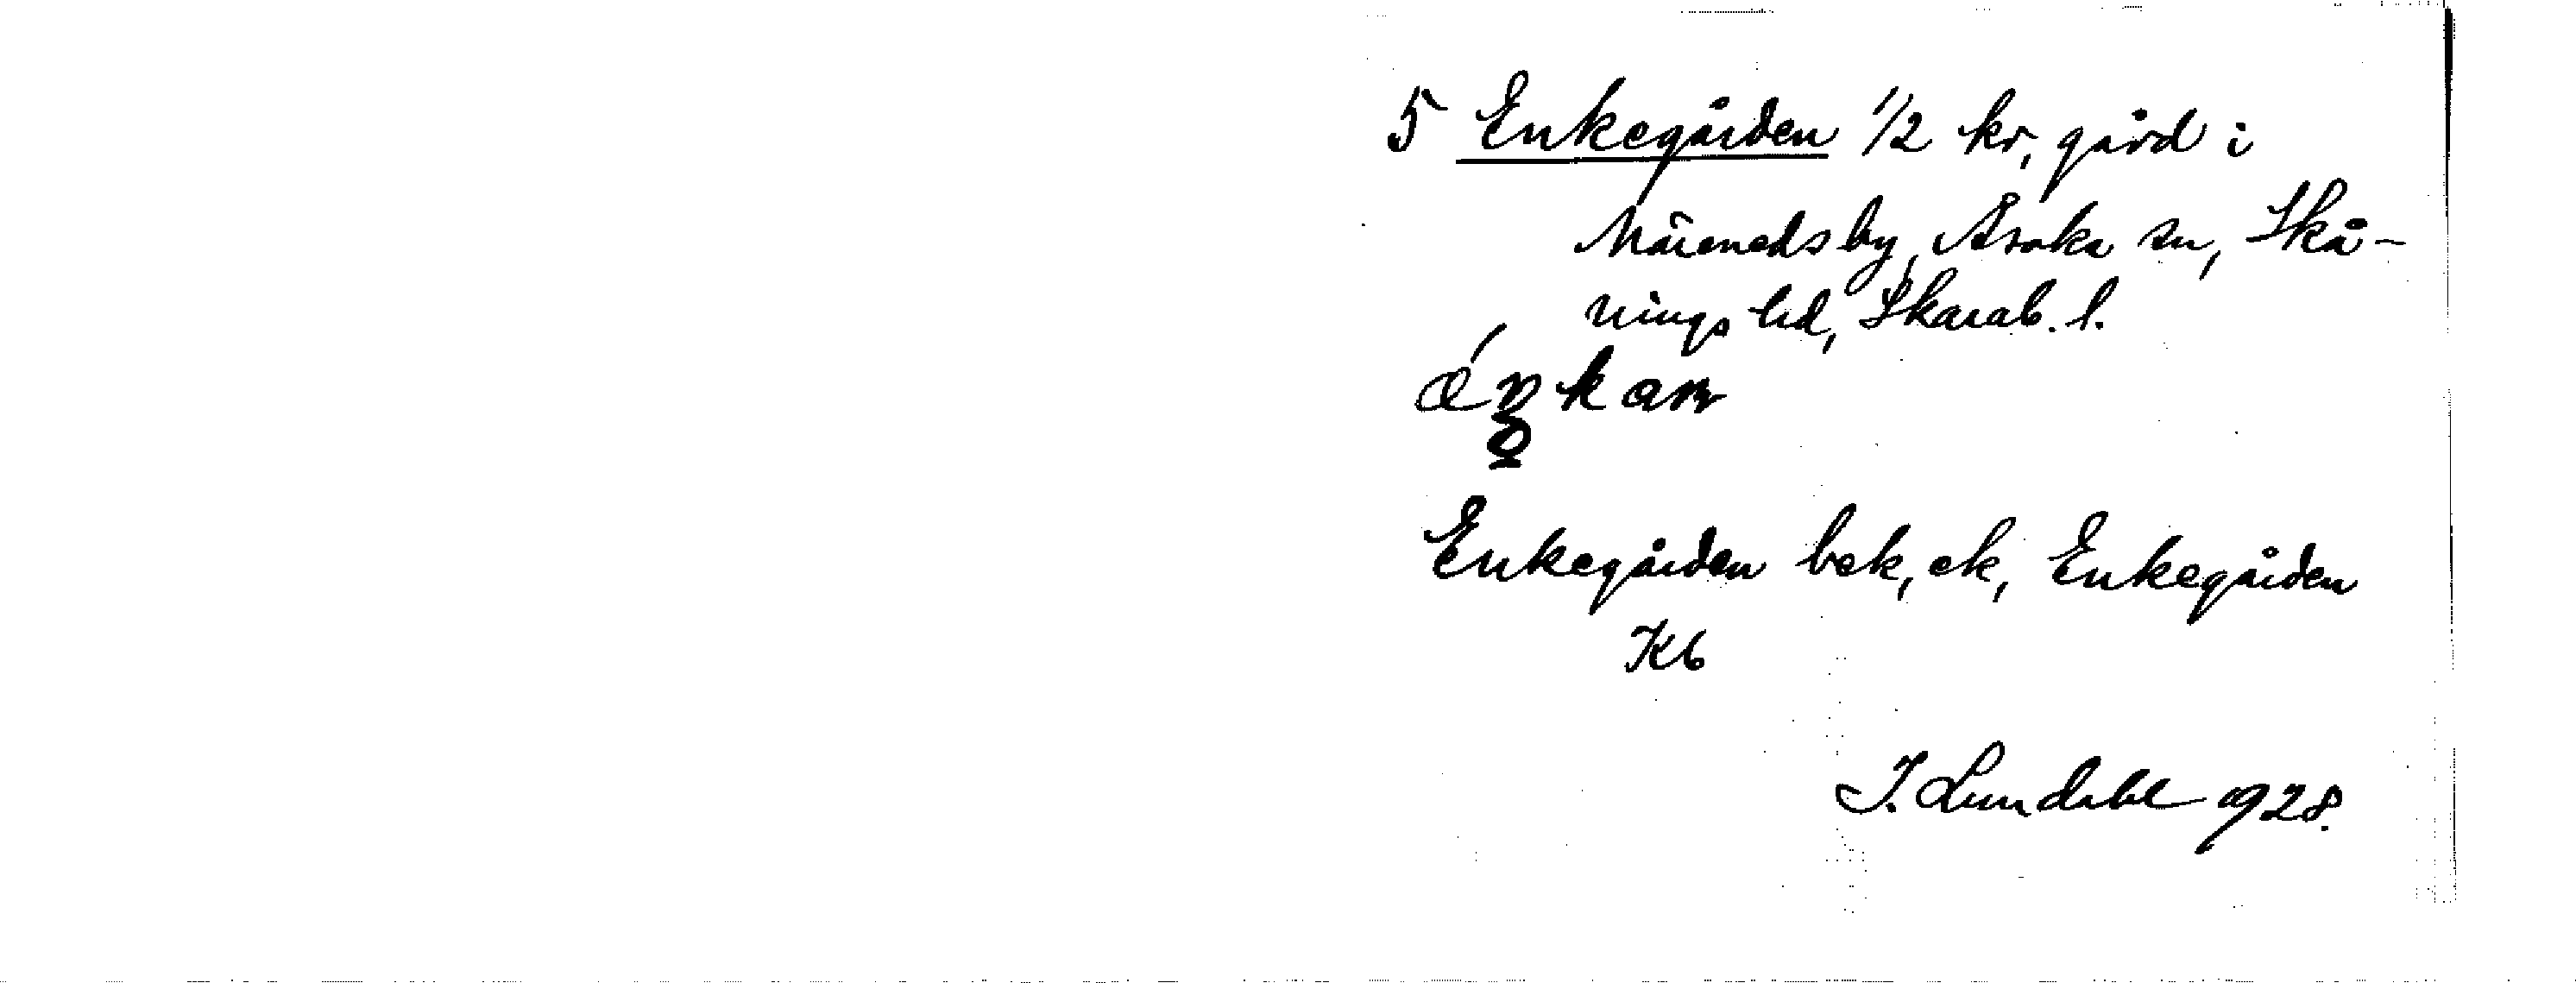 5 Enkegården 1/2 kr, gård i
Märeneds by, Åsaka sn, Skå-
nings hd, Skarab. l.
Enkegården bek, ek, Enkegården
Kb
I. Lundahl 1928.